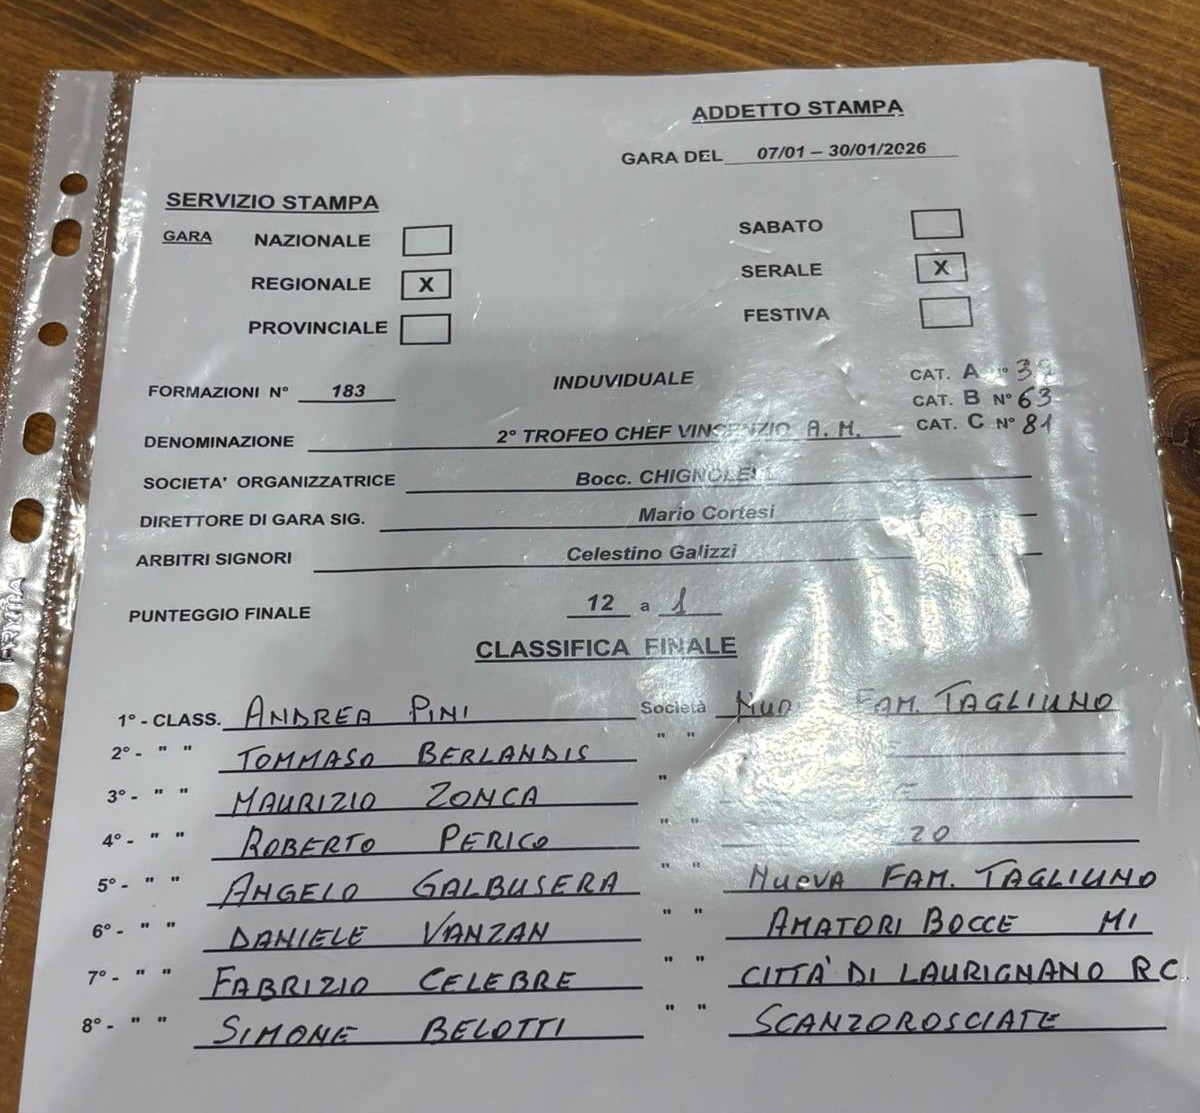 ADDETTO STAMPA
GARA DEL 07/01 – 30/01/2026
SERVIZIO STAMPA
GARA NAZIONALE SABATO
REGIONALE X SERALE X
PROVINCIALE FESTIVA
FORMAZIONI N° 183 INDUVIDUALE CAT. A
CAT. B N° 63
DENOMINAZIONE 2° TROFEO CHEF A. M. CAT. C N° 81
SOCIETA' ORGANIZZATRICE Bocc.
DIRETTORE DI GARA SIG. Mario Cortesi
ARBITRI SIGNORI Celestino Galizzi
PUNTEGGIO FINALE 12 a 1
CLASSIFICA FINALE
1° - CLASS. ANDREA PINI Società FAM. TAGLIUNO
2° - " " TOMMASO BERLANDIS " "
3° - " " MAURIZIO ZONCA "
4° - " " ROBERTO PERICO " "
5° - " " ANGELO GALBUSERA " " NUEVA FAM. TAGLIUNO
6° - " " DANIELE VANZAN " " AMATORI BOCCE MI
7° - " " FABRIZIO CELEBRE " " CITTÀ DI LAURIGNANO R.C.
8° - " " SIMONE BELOTTI " " SCANZOROSCIATE